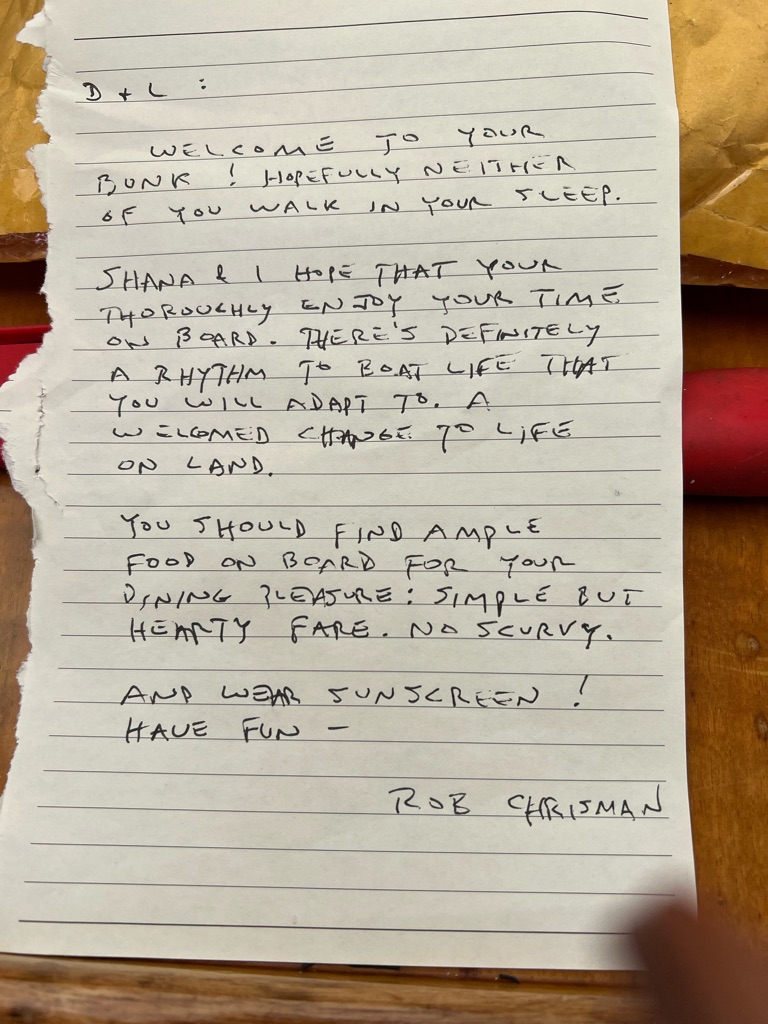 D + L :
WELCOME TO YOUR
BUNK ! HOPEFULLY NEITHER
OF YOU WALK IN YOUR SLEEP.
SHANA & I HOPE THAT YOUR
THOROUGHLY ENJOY YOUR TIME
ON BOARD. THERE'S DEFINITELY
A RHYTHM TO BOAT LIFE THAT
YOU WILL ADAPT TO. A
WELCOMED CHANGE TO LIFE
ON LAND.
YOU SHOULD FIND AMPLE
FOOD ON BOARD FOR YOUR
DINING PLEASURE: SIMPLE BUT
HEARTY FARE. NO SCURVY.
AND WEAR SUNSCREEN !
HAVE FUN –
ROB CHRISMAN